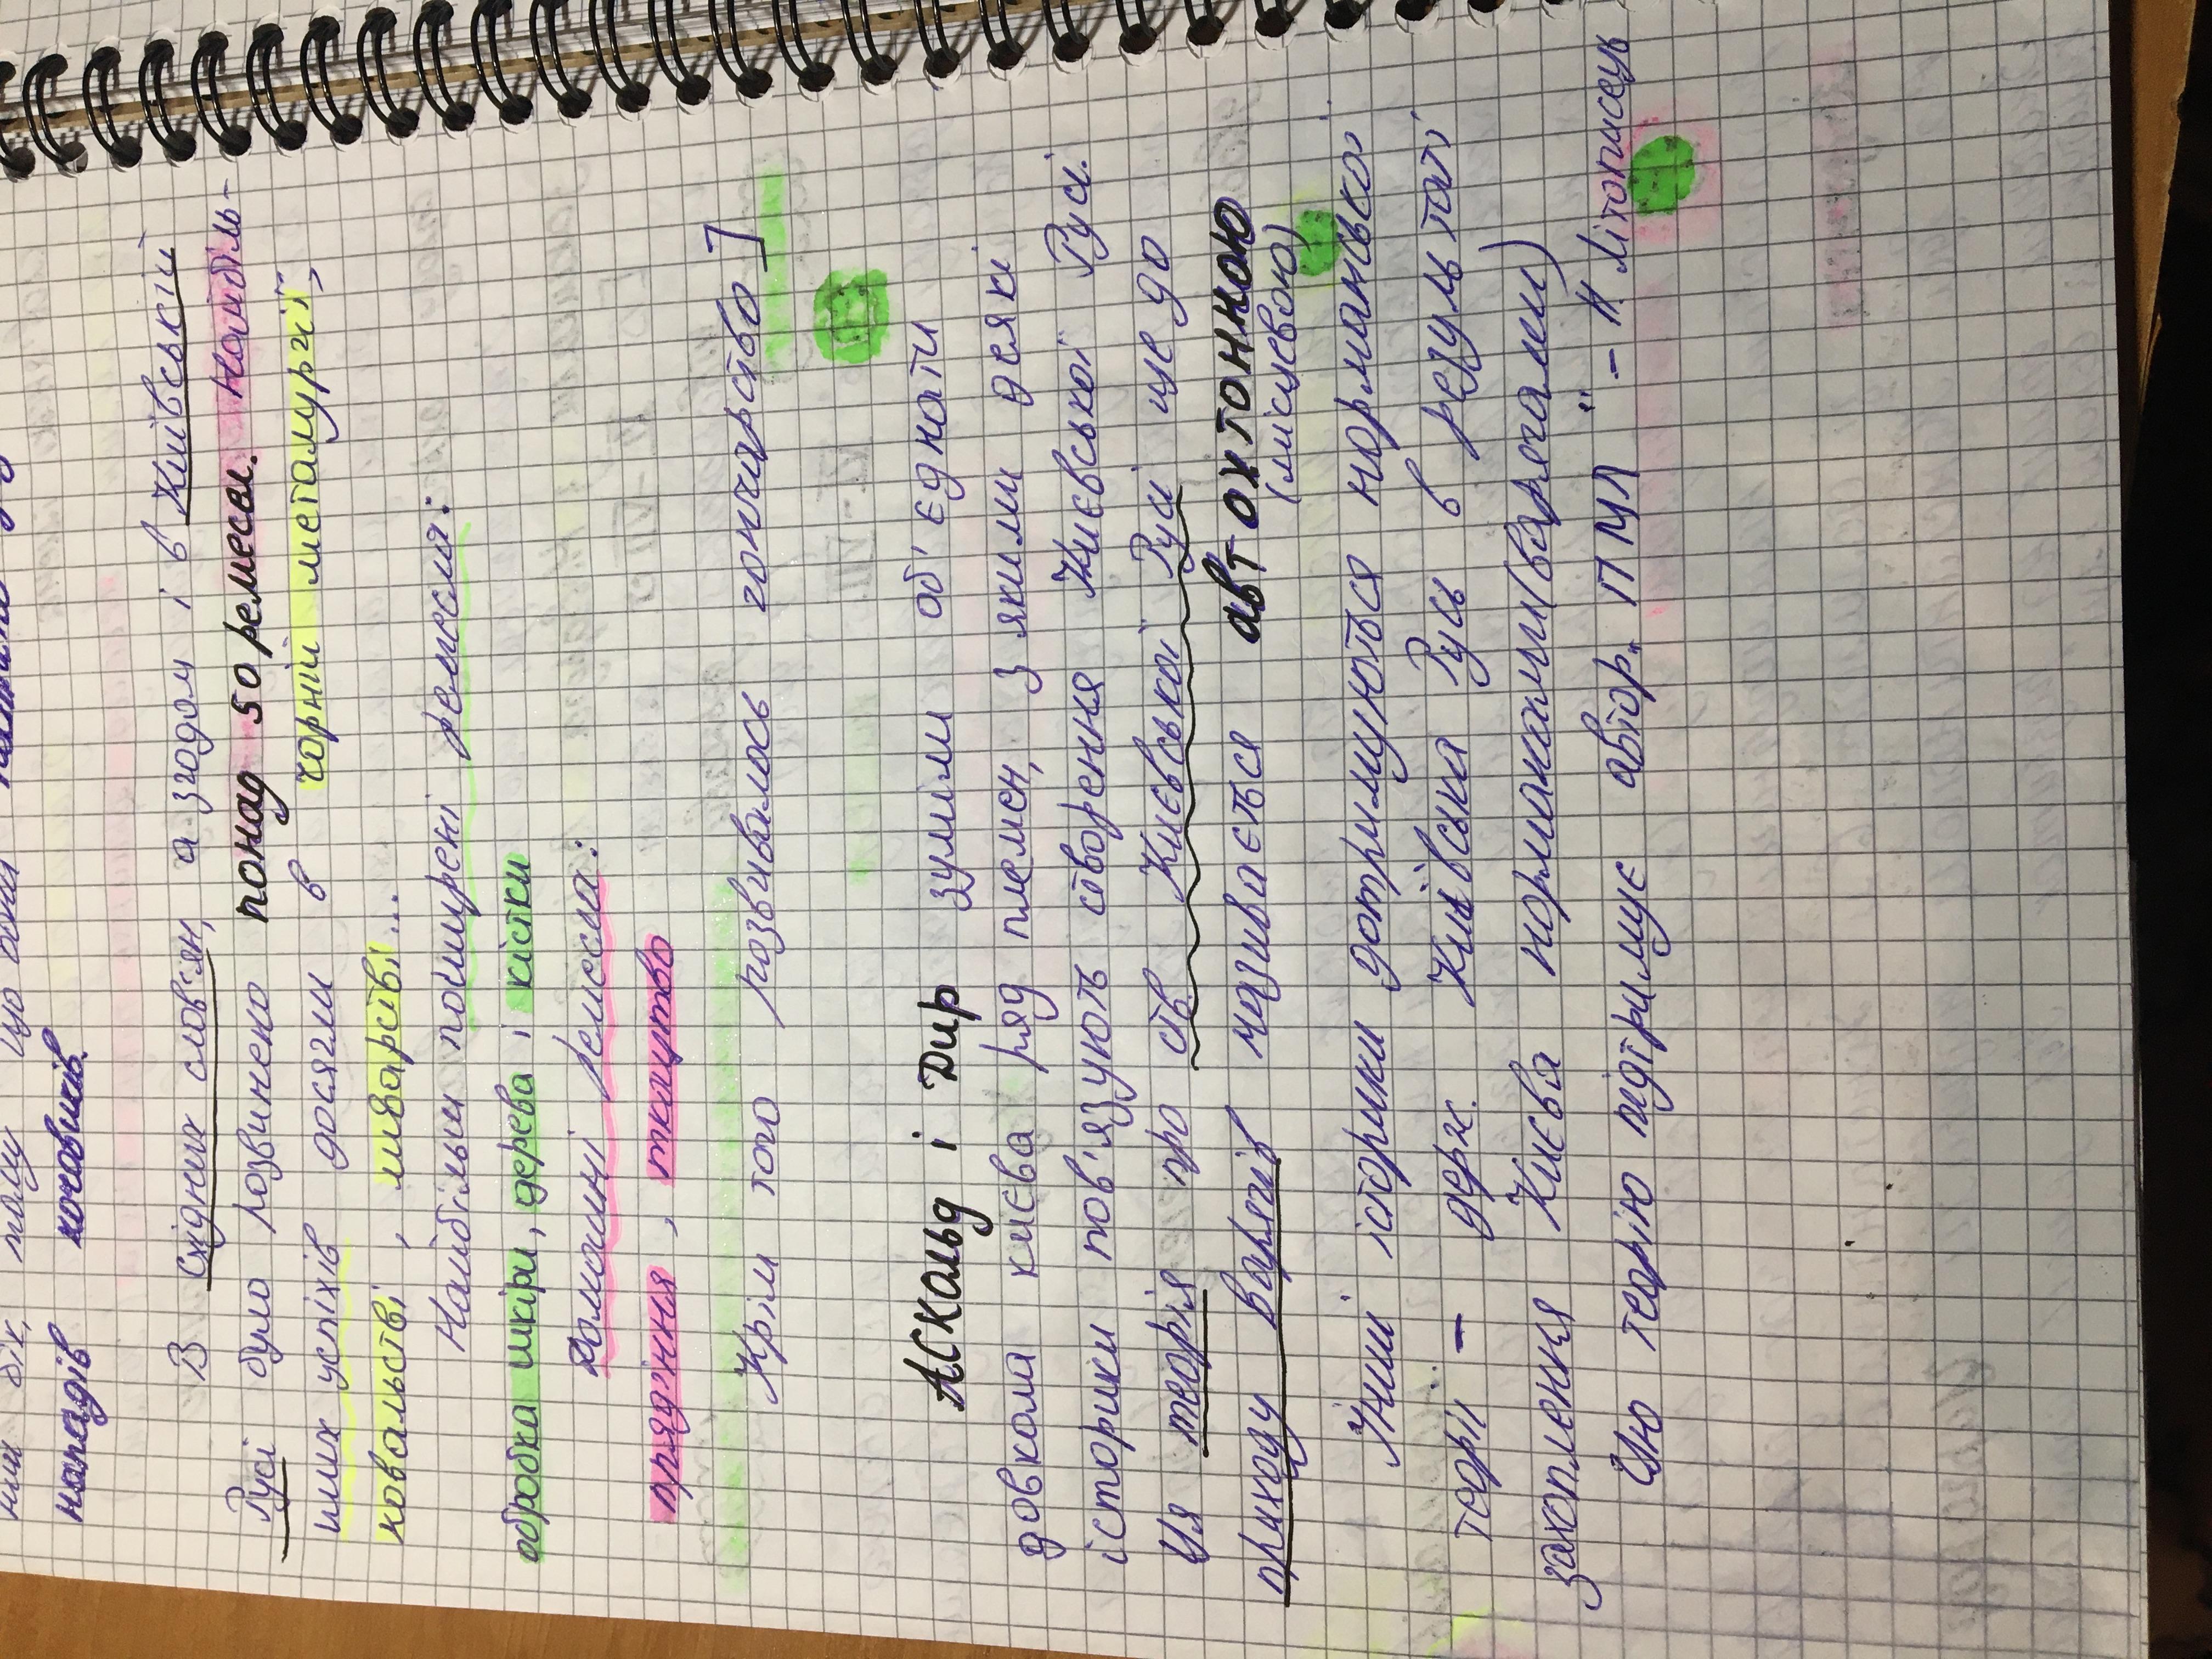 ний бік, тому що вони
нападів кочовиків.
В східних слов'ян, а згодом і в Київській
Русі було розвинено понад 50 ремесел. Найбіль-
ших успіхів досягли в чорній металургії,
ковальстві, ливарстві...
Найбільш поширені ремесла:
обробка шкіри, дерева і кістки
Домашні ремесла:
прядіння, ткацтво
Крім того розвивалось гончарство]
Аскольд і Дир зуміли об'єднати
довкола києва ряд племен, з якими деякі
історики пов'язують створення Києвської Русі.
Ця теорія про ств. Києвської Русі ще до
приходу варягів називається автохтонною
(місцевою)
Інші історики дотримуються норманської
теорії - держ. Київська Русь в результаті
захоплення Києва норманами(варягами)
Цю теорію підтримує автор „ПМЛ" - Н. літописець